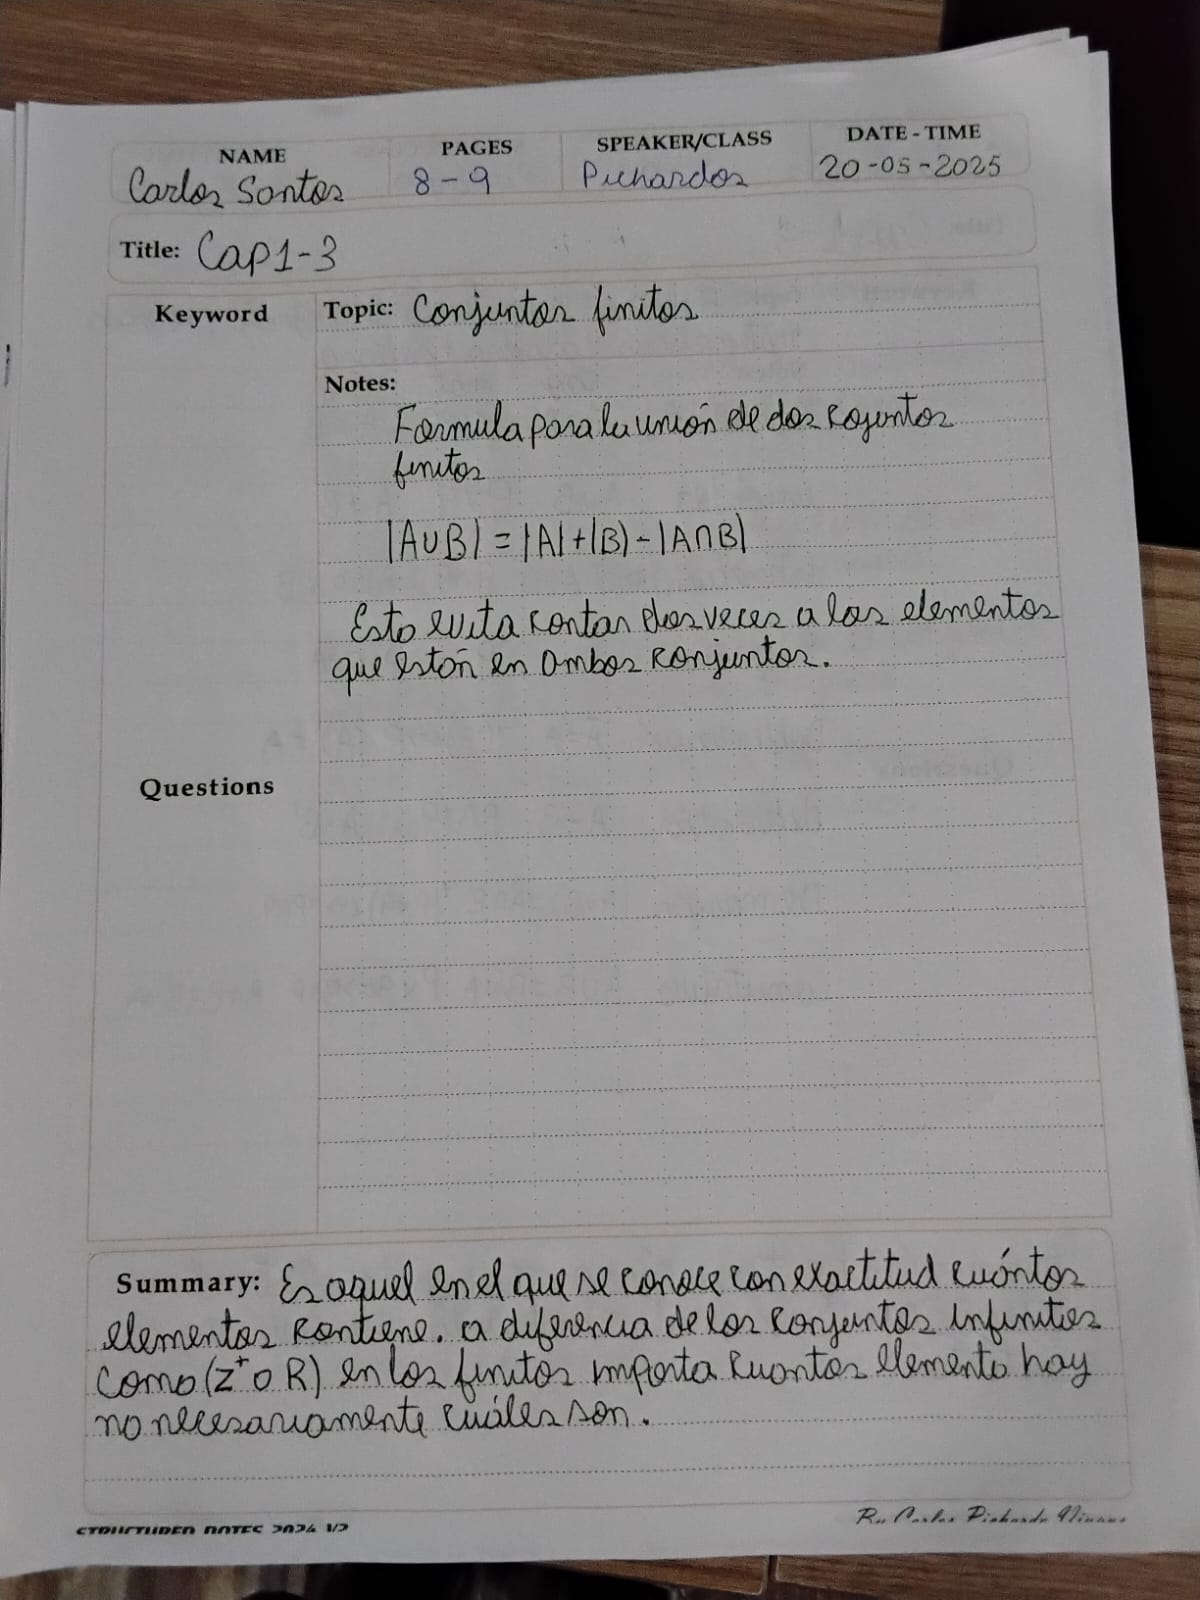 NAME
Carlos Santos
PAGES
8-9
SPEAKER/CLASS
Pichardos
DATE - TIME
20-05-2025
Title: Cap1-3
Keyword
Topic: Conjuntos finitos
Notes:
Formula para la unión de dos cojuntos
finitos
|A∪B| = |A|+|B|-|A∩B|
Esto evita contar dos veces a los elementos
que están en ambos conjuntos.
Questions
Summary: Es aquel en el que se conoce con exactitud cuántos
elementos contiene. a diferencia de los conjuntos infinities
como (Z⁺ o R) en los finitos importa cuantos elemento hay
no necesariamente cuáles son.
STRUCTURED NOTES 2024 V2
By Carlos Pichardo